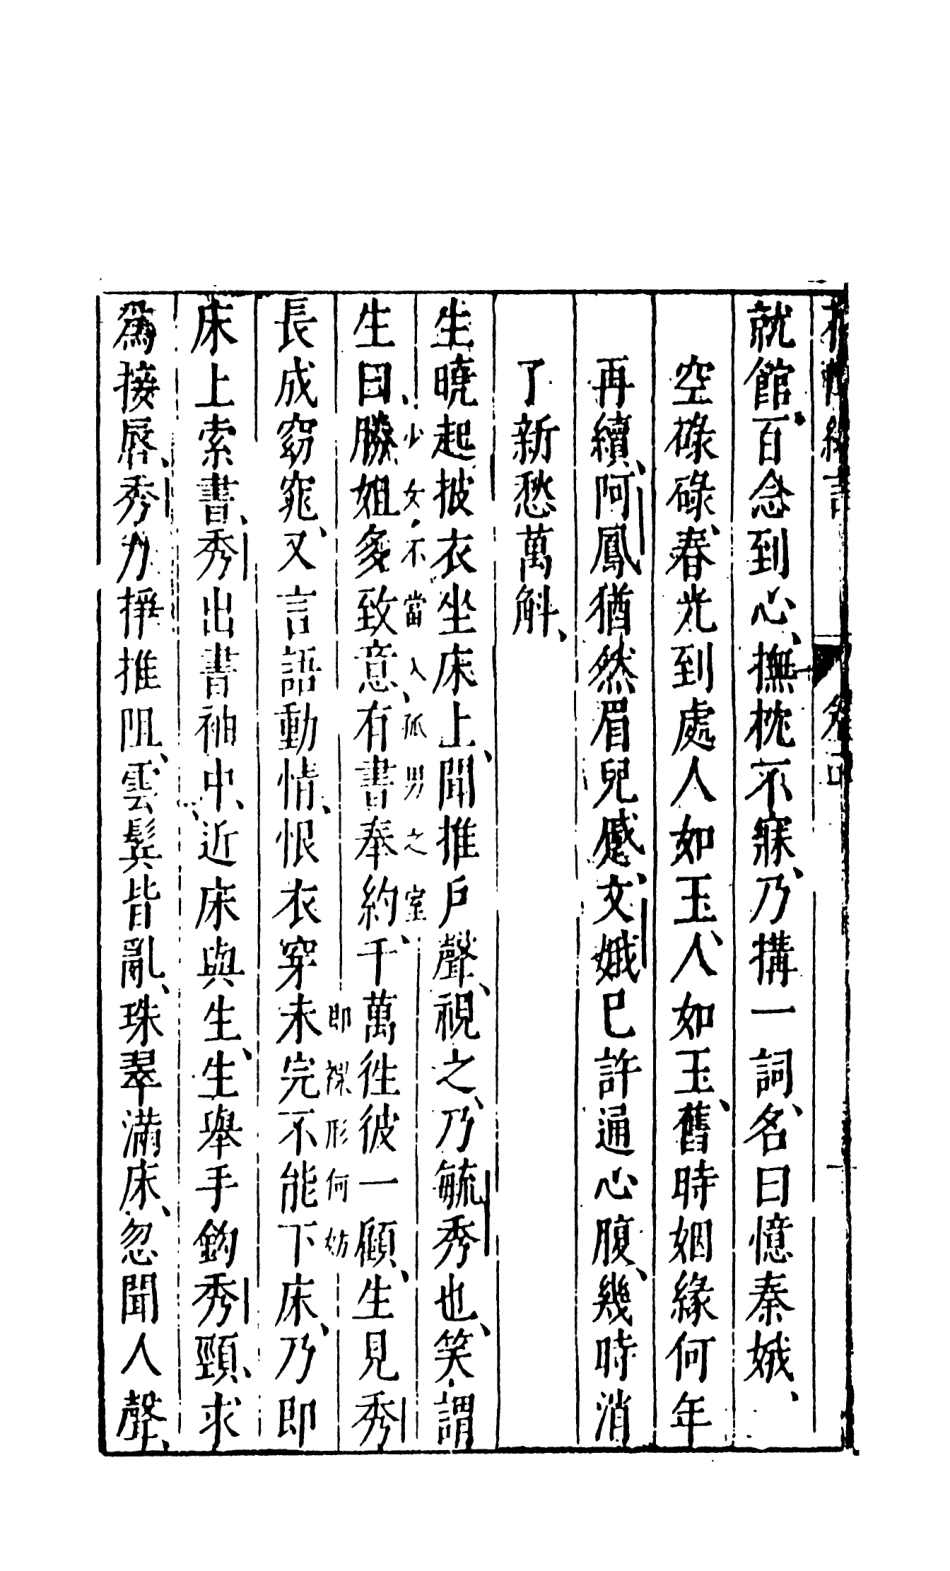 就館、百念到心、撫枕不寐、乃搆一詞、名曰憶秦娥、
空碌碌、春光到處人如玉、人如玉、舊時姻緣何年
再續、阿鳳猶然眉兒蹙、文娥已許通心腹、幾時消
了新愁萬斛、
生曉起披衣坐床上、聞推戶聲、視之、乃毓秀也、笑謂
少女不當入孤男之室
生曰、勝姐多致意、有書奉約、千萬徃彼一顧、生見秀
即裸形何妨
長成窈窕、又言語動情、恨衣穿未完不能下床、乃即
床上索書、秀出書袖中、近床與生、生舉手鈎秀頸、求
爲接唇、秀力掙推阻、雲鬂皆亂、珠翠滿床、忽聞人聲、